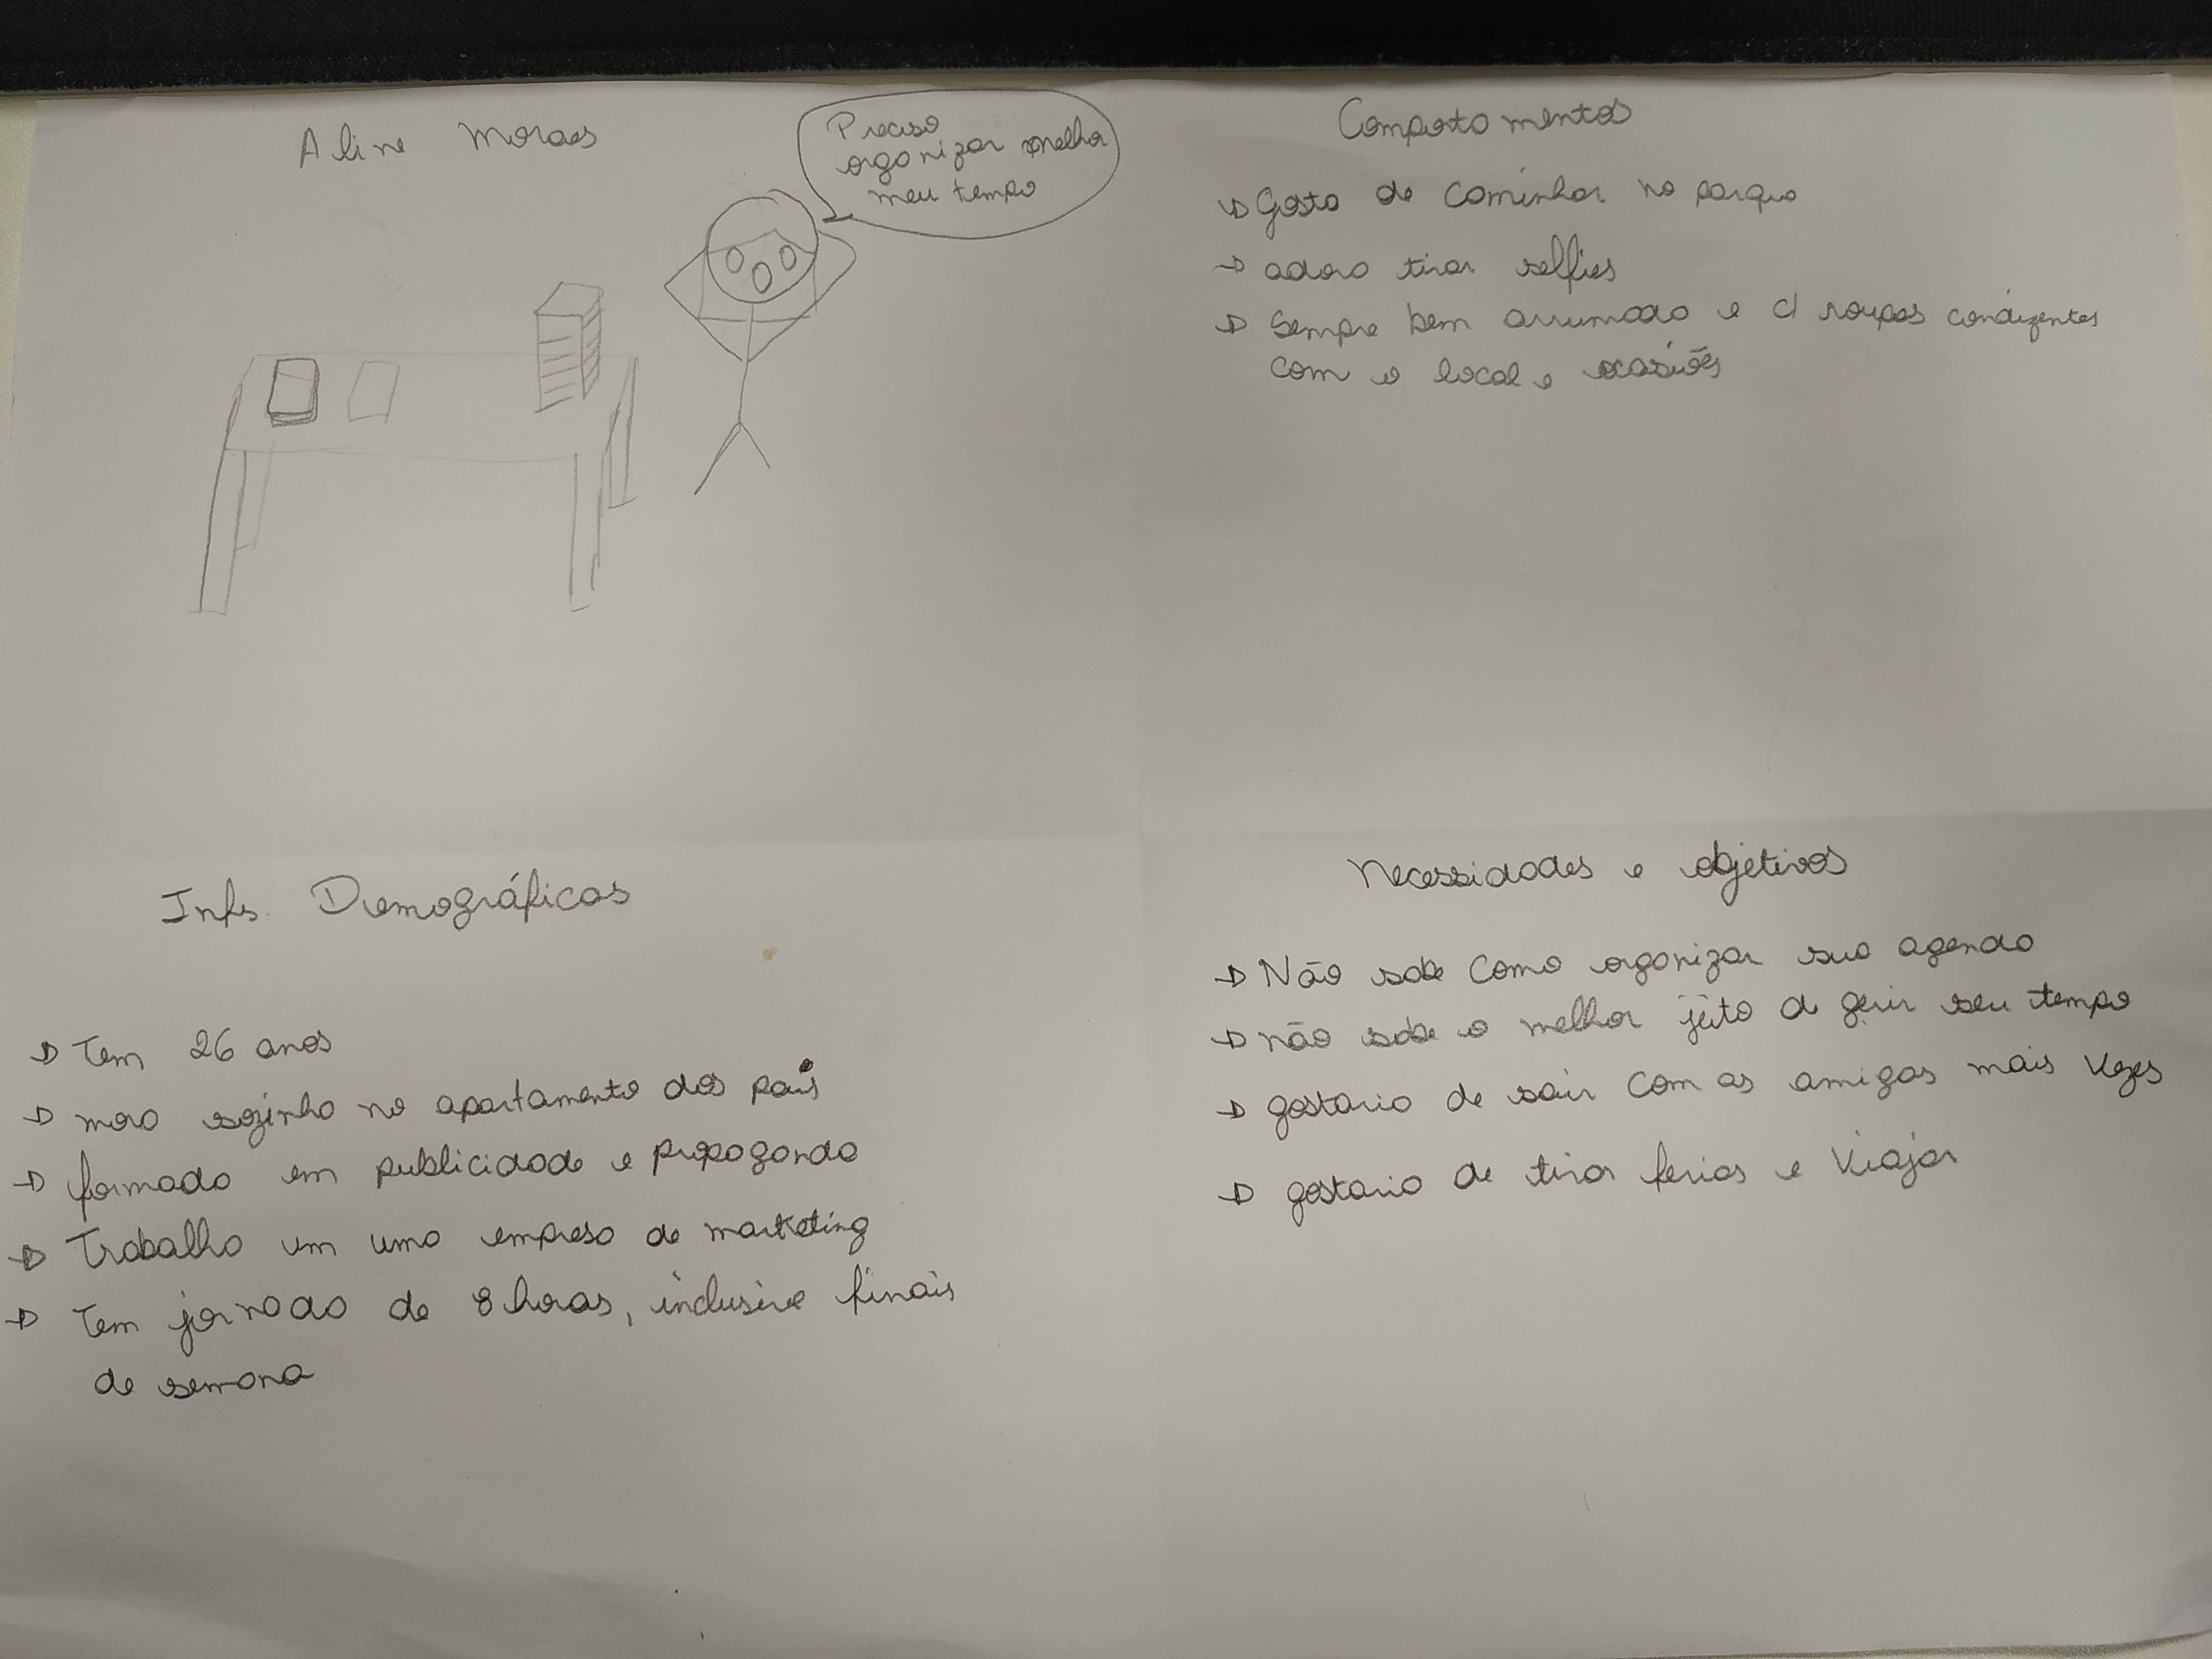 Aline Moraes
Preciso
organizar melhor
meu tempo
Comportamentos
→ Gosta de caminhar no parque
→ adora tirar selfies
→ Sempre bem arrumada e c/ roupas condizentes
com o local e ocasiões
Infs. Demográficas
→ Tem 26 anos
→ mora sozinha no apartamento dos pais
→ formada em publicidade e propaganda
→ Trabalha em uma empresa de marketing
→ Tem jornada de 8 horas, inclusive finais
de semana
Necessidades e objetivos
→ Não sabe como organizar sua agenda
→ não sabe o melhor jeito d gerir seu tempo
→ gostaria de sair com as amigas mais vezes
→ gostaria de tirar ferias e viajar